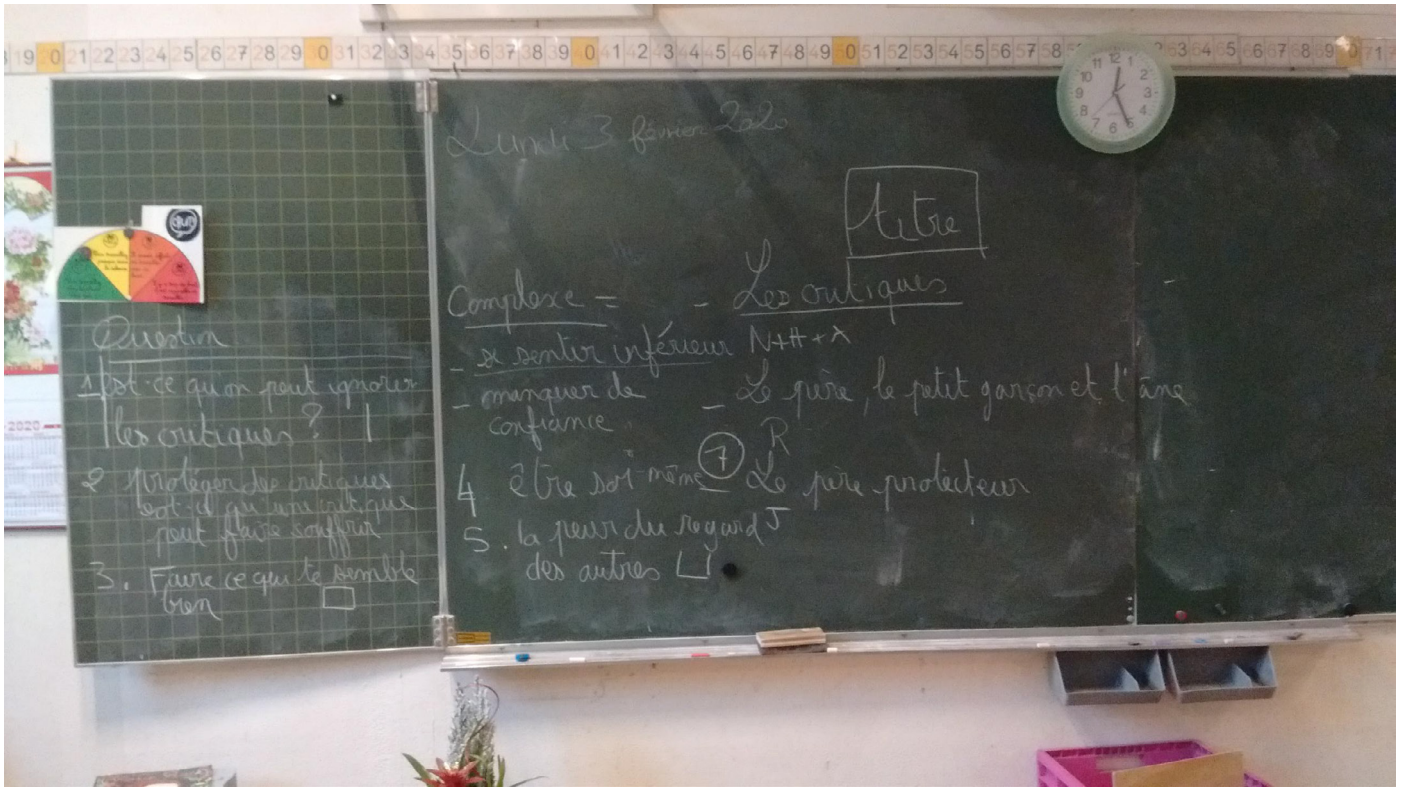 19 20 21 22 23 24 25 26 27 28 29 30 31 32 33 34 35 36 37 38 39 40 41 42 43 44 45 46 47 48 49 50 51 52 53 54 55 56 57 58 63 64 65 66 67 68 69 70 71
12 1 2 3 4 5 6 7 8 9 10 11
Lundi 3 février 2020
titre
Question
1 Est-ce qu'on peut ignorer
les critiques ?
2 protéger des critiques
est-ce qu'une critique
peut faire souffrir
3. Faire ce qui te semble
bien
Complexe =
- se sentir inférieur
- manquer de
confiance
4 être soi-même
5. la peur du regard
des autres
- Les critiques
N+H+A
- Le père, le petit garçon et l'âne
7 R
- Le père protecteur
J
2020